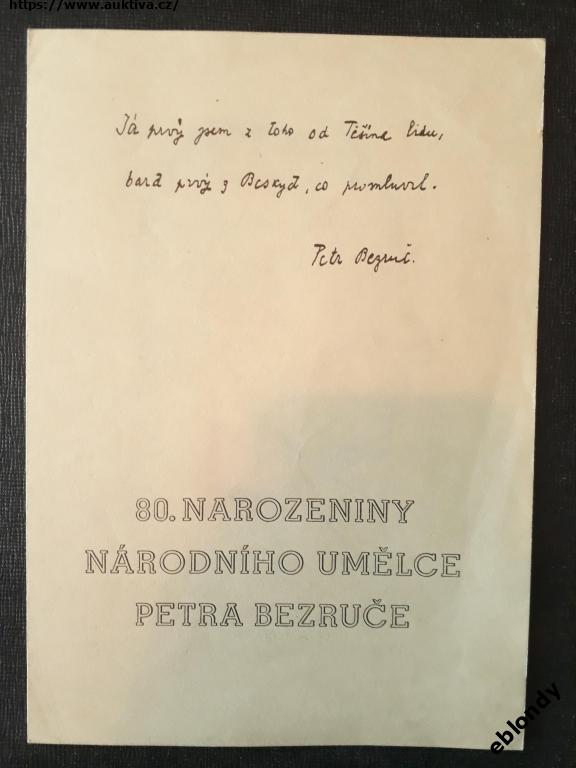 https://www.auktiva.cz/
Já prvý jsem z toho od Těšína lidu,
bard prvý z Beskyd, co promluvil.
Petr Bezruč.
80. NARODENINY
NÁRODNÍHO UMĚLCE
PETRA BEZRUČE
eblondy